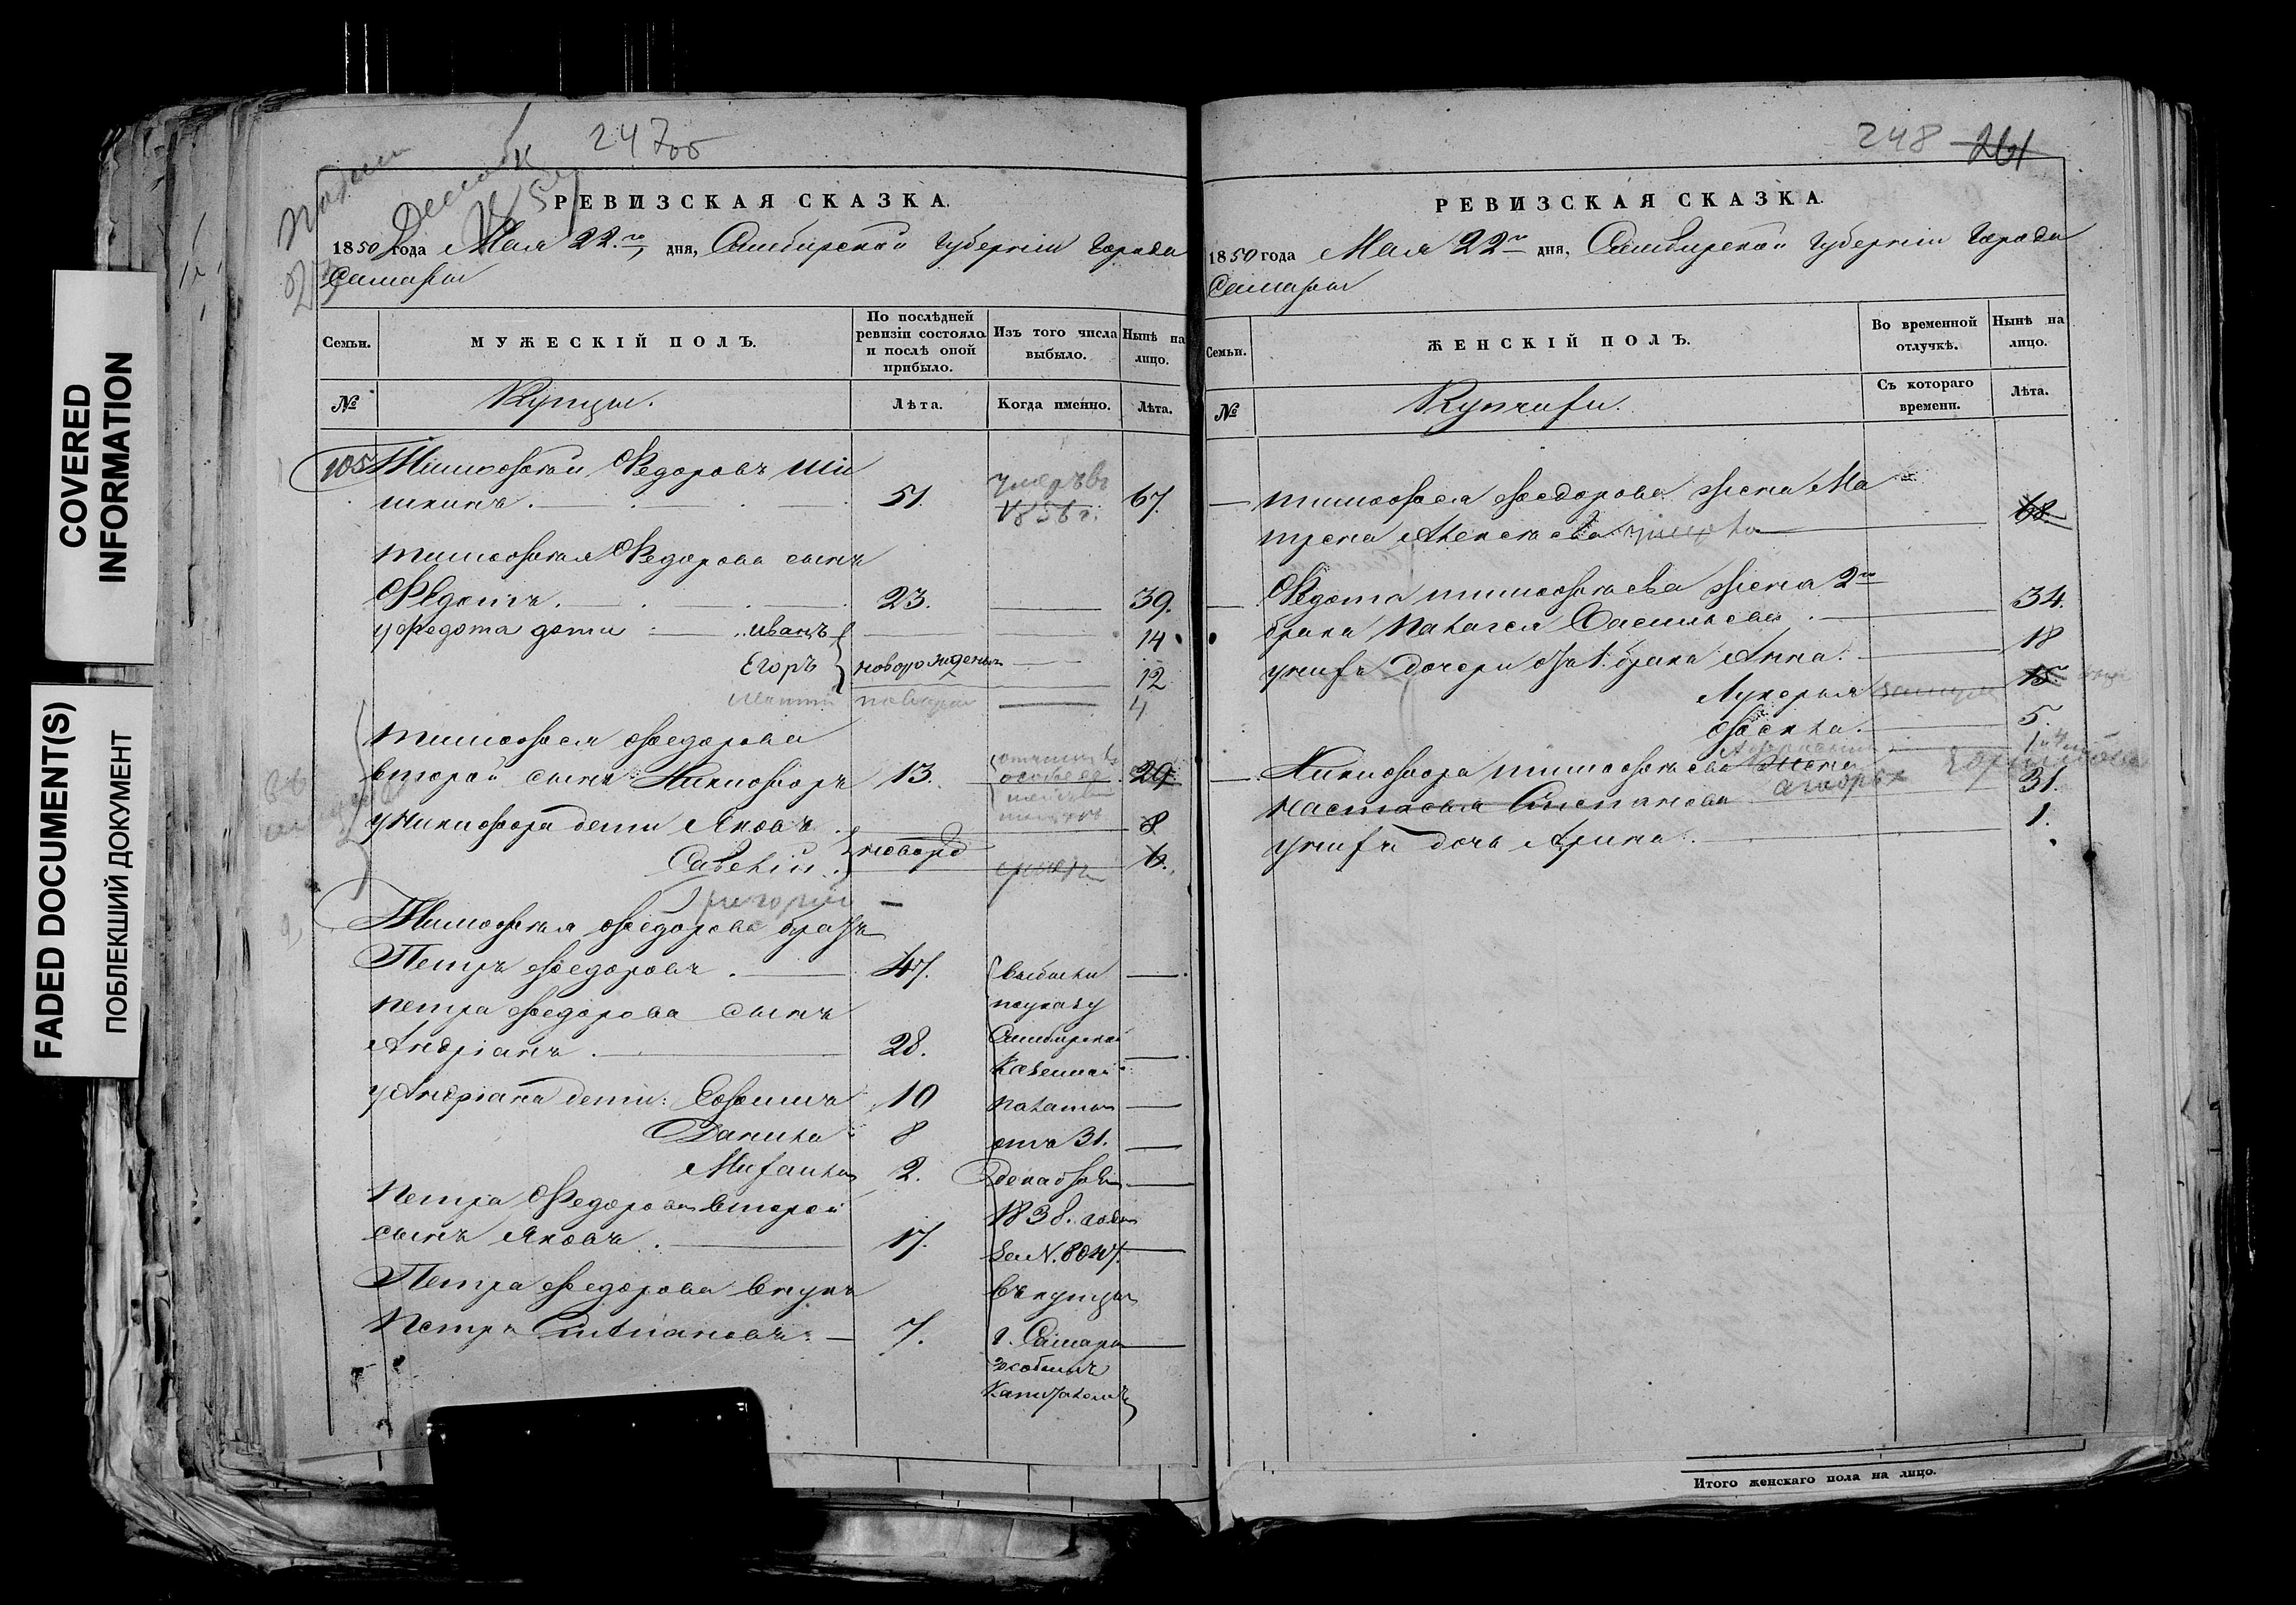 COVERED
INFORMATION
FADED DOCUMENT(S)
ПОБЛЕКШИЙ ДОКУМЕНТ
247об
РЕВИЗСКАЯ СКАЗКА.
1850 года Мая 22го дня, Симбирской Губернiи Города
Самары
Семьи.
МУЖЕСКІЙ ПОЛЪ.
По послѣдней ревизіи состояло и послѣ оной прибыло.
Изъ того числа выбыло.
Нынѣ на лицо.
№
Купцы.
Лѣта.
Когда именно.
Лѣта.
105 Тимофей Федоровъ Ши
шкинъ . 51. умеръ въ 1856 г. 67.
Тимофея Федорова сынъ
Федотъ. 23. 39.
у Федота дети : Иванъ 14
Егоръ новорожденъ 12
4
Тимофея Федорова
второй сынъ Никифоръ 13. 29.
у Никифора дети Яковъ 8
Савелiй новорд 6.
Григорiй
Тимофея Федорова братъ
Петръ Федоровъ . 47. выбыли
Петра Федорова сынъ по указу
Андрiанъ . 28. Симбирской
Казенной
у Андрiана дети: Ефимъ 10 Палаты
Данила 8 отъ 31.
Михайла 2. Декабря
Петра Федорова второй 1838. года
сынъ Яковъ . 17. за N. 8047.
Петра Федорова внукъ въ купцы
Петръ 7. г. Самары
особымъ
Капиталомъ
248 261
РЕВИЗСКАЯ СКАЗКА.
1850 года Мая 22го дня, Симбирской Губернiи Города
Самары
Семьи.
ЖЕНСКІЙ ПОЛЪ.
Во временной отлучкѣ.
Нынѣ на лицо.
№
Купчихи.
Съ котораго времени.
Лѣта.
Тимофея Федорова жена Ма
трена Алексѣева умерла 68.
Федота Тимофеева жена 2го
брака Палагея Васильева . 34.
у нихъ дочери от 1. брака Анна. 18
Лукерья 15.
Фёкла. 5.
Никифора Тимофеева жена
Настасья Степанова 31.
у нихъ дочь Арина . 1.
Итого женскаго пола на лицо.